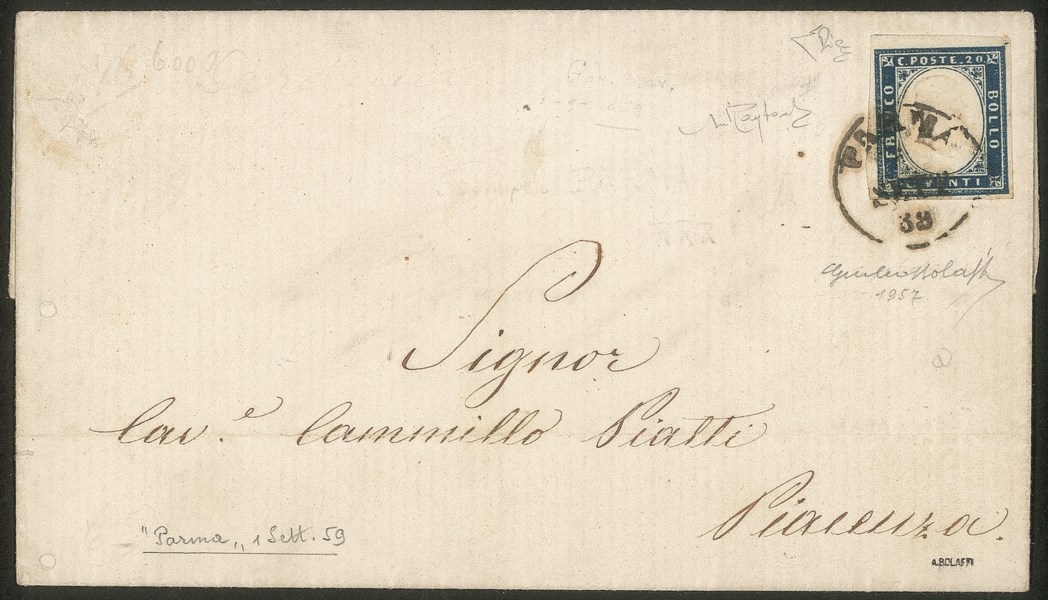 C. POSTE. 20
FRANCO
BOLLO
VENTI
PARMA
38
Giulio Bolaffi
1957
Signor
Cav.e Cammillo Piatti
Piacenza.
"Parma„ 1 Sett. 59
A.BOLAFFI